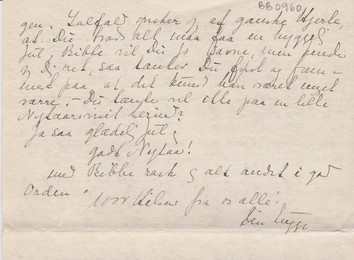 BB0960
gen. I alfald ønsker vi af ganske Hjerte,
at Du, trods alt, maa faa en hyggelig
Jul. Bibbe vil Du jo savne, men
Du ret, saa tænker Du først og
mest paa, at det kunde have været meget
værre. – Du tænker vel ikke paa en lille
Nytaarsvisit herind?
Ja saa glædelig Jul og
godt Nytaar!
med Bibbe rask og alt andet i god
Orden.
1000 Hilsner fra os alle!
Din